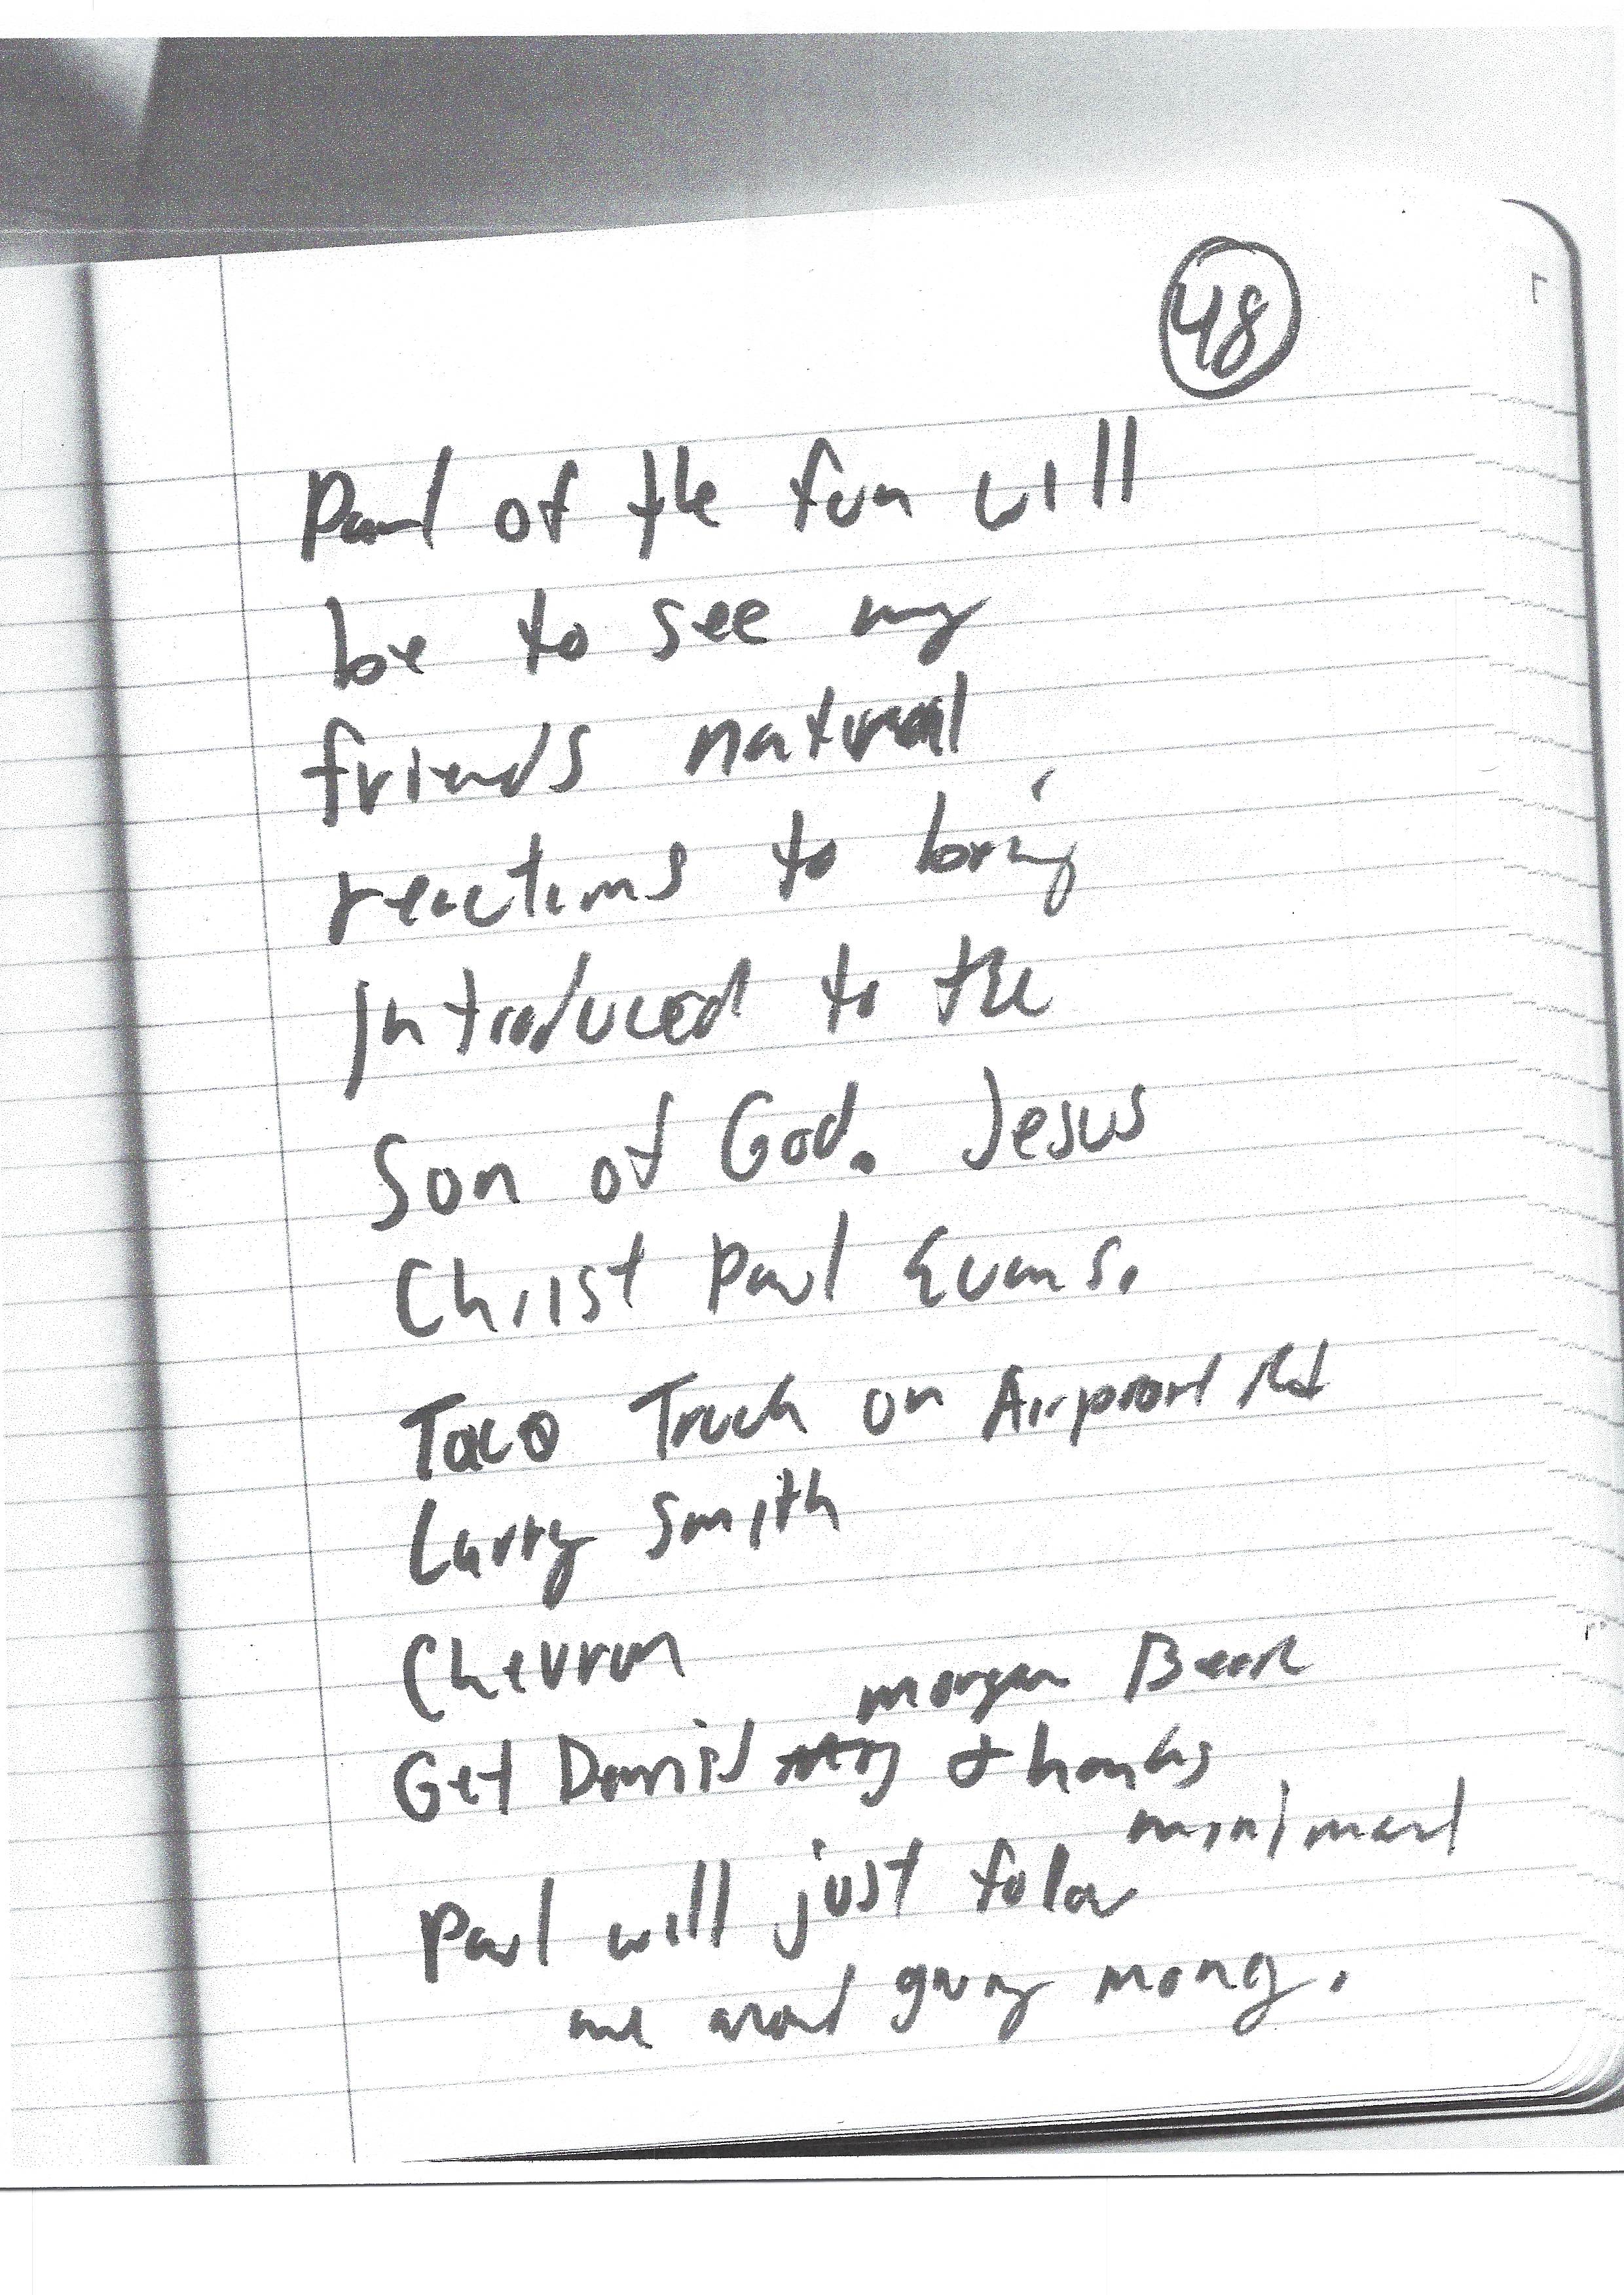 48
Part of the fun will
be to see my
friends natural
reactions to being
Introduced to the
Son of God. Jesus
Christ Paul Evans.
Taco Truck on Airport Rd
Larry Smith
Chevron
morgan
Get Daniel & thanks
minimart
Paul will just folow
me giving mony.